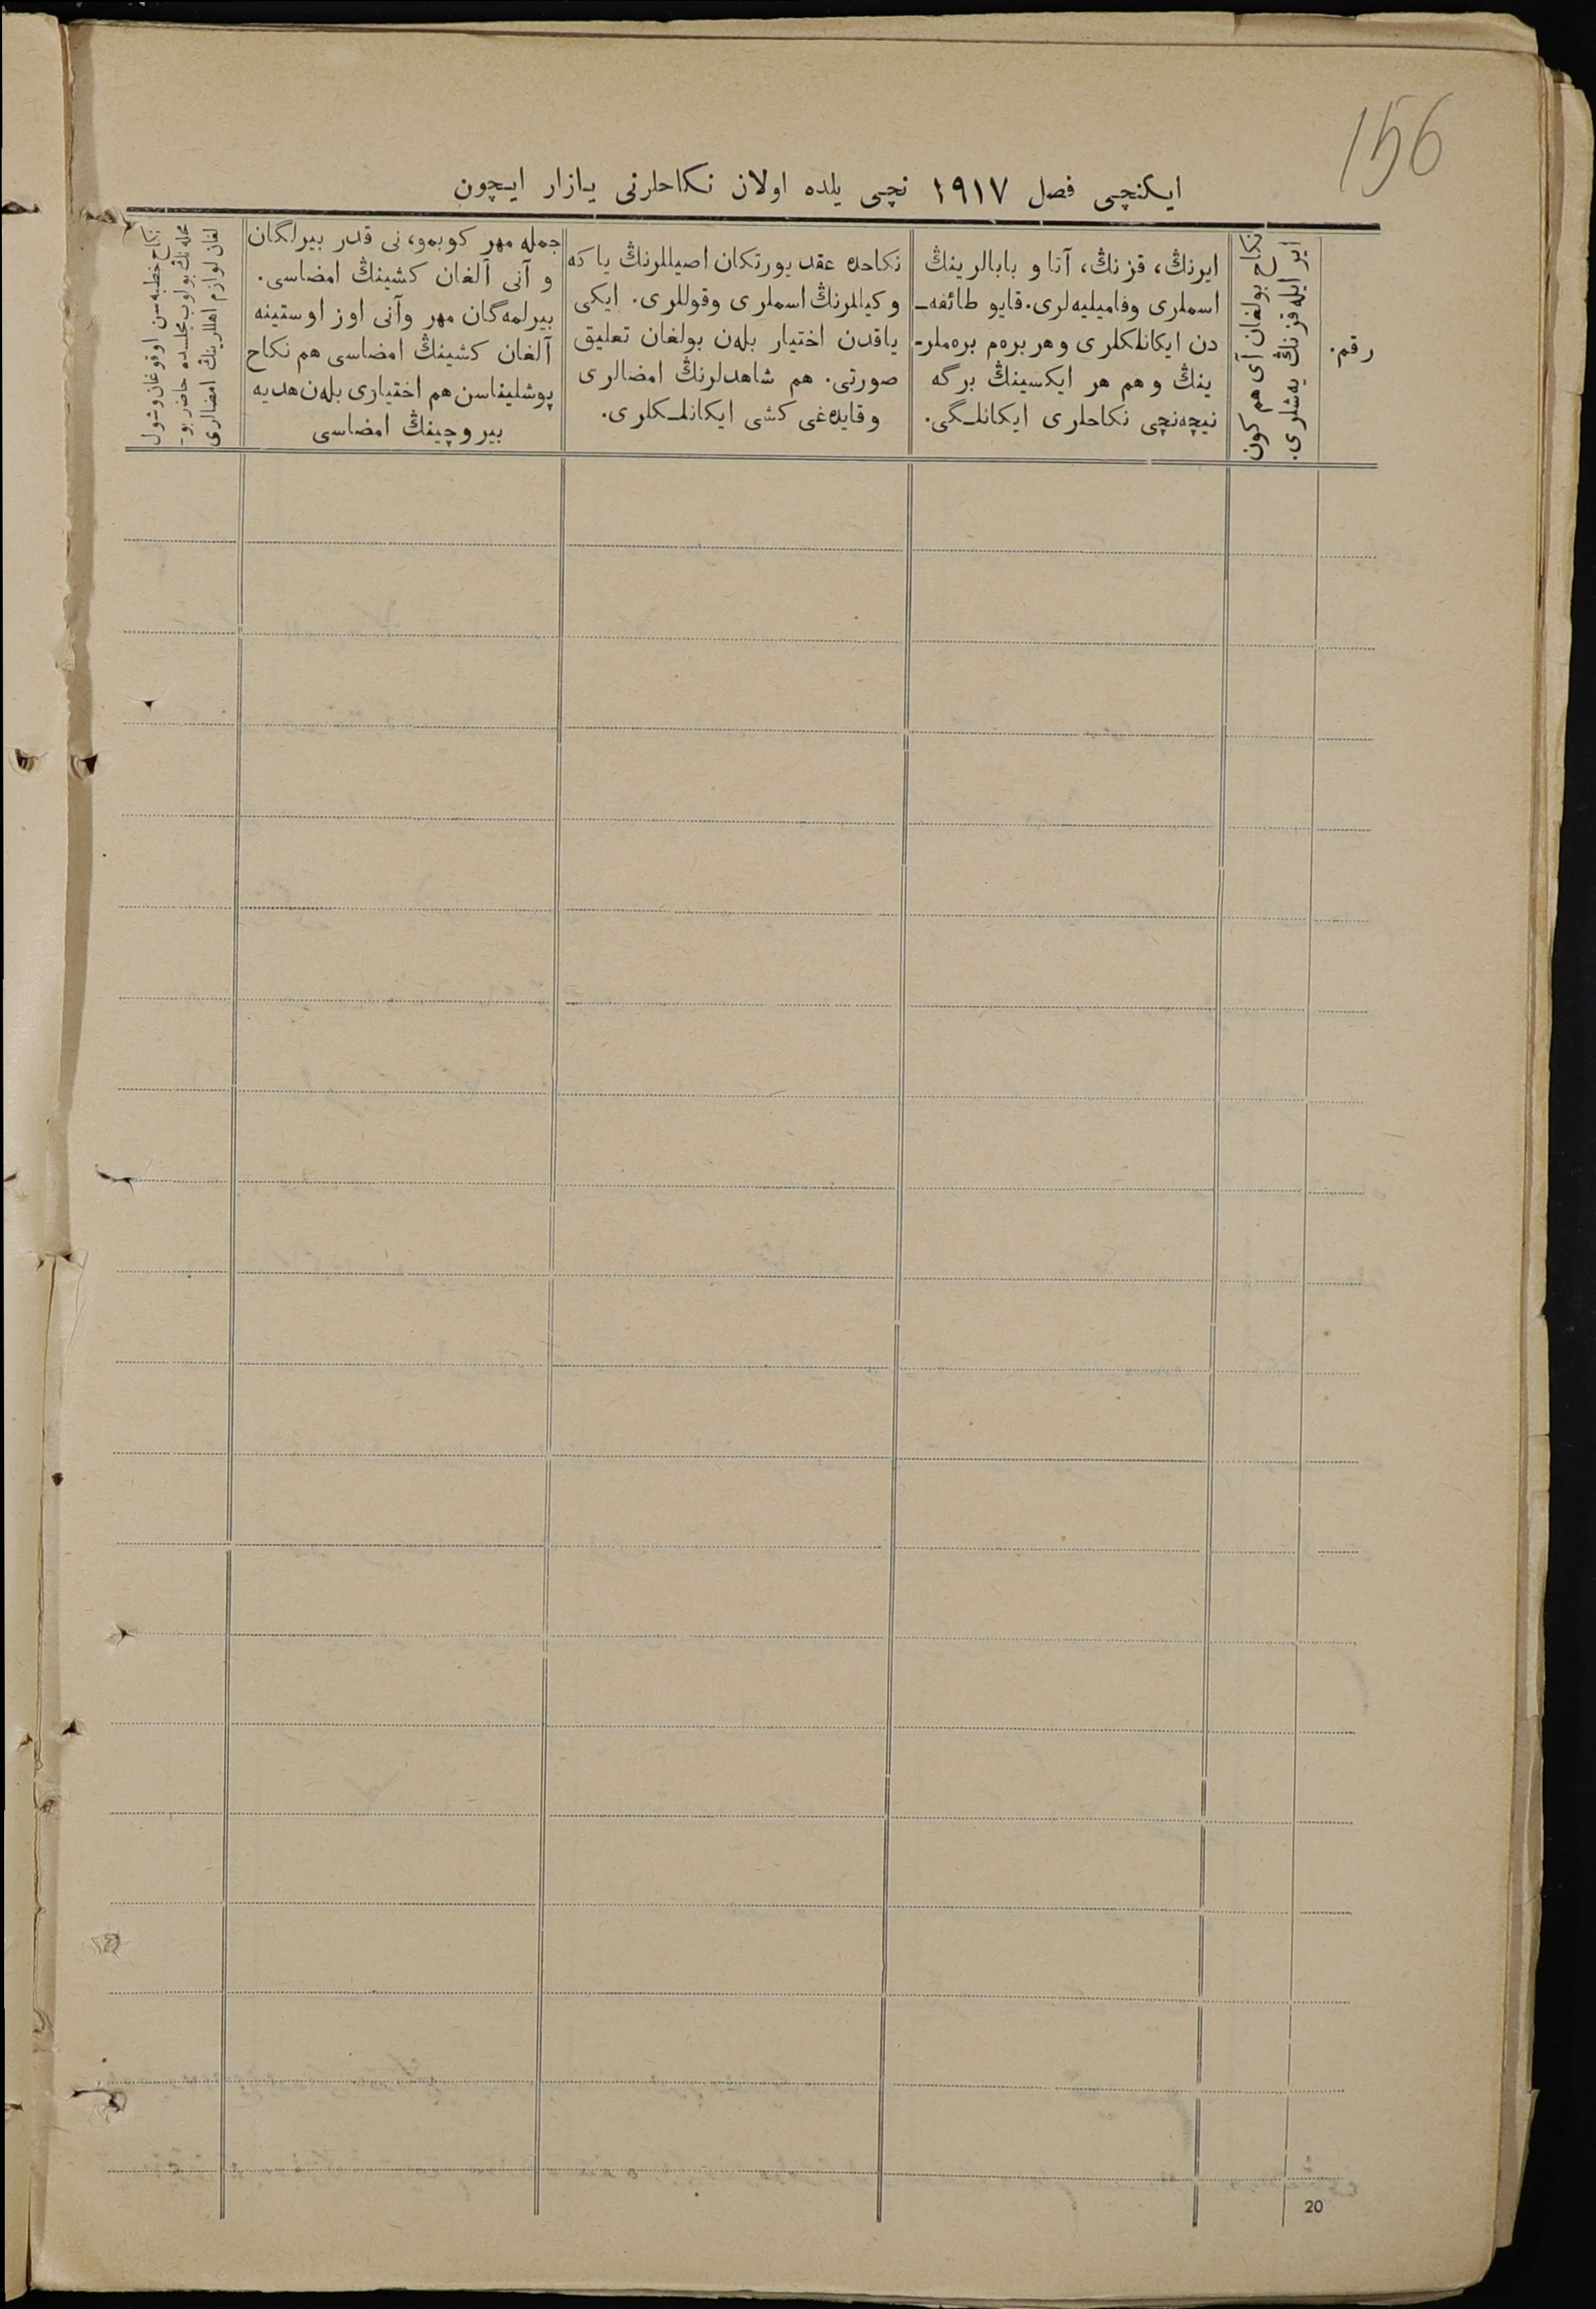 156
ایکنچی فصل ۱۹۱۷ نچی یلده اولان نکاحلرنی یازار ایچون
رقم.
نکاح بولغان آی هم کون
ایر ایله قزنڭ یه‌شلری.
ایرنڭ، قزنڭ، آتا و بابالرینڭ
اسملری وفامیلیه‌لری. قایو طائفه‌ـ
دن ایکانلکلری وهر بره‌م بره‌ملر-
ینڭ وهم هر ایکسینڭ برگه
نیچه‌نچی نکاحلری ایکانلـگی.
نکاحده عقد یورتکان اصیللرنڭ یاکه
وکیللرنڭ اسملری وقوللری. ایکی
یاقدن اختیار بله‌ن بولغان تعلیق
صورتی. هم شاهدلرنڭ امضالری
وقایده‌غی کشی ایکانلـکلری.
جمله مهر کوبمو، نی قدر بیرلگان
و آنی آلغان کشینڭ امضاسی.
بیرلمه‌گان مهر وآنی اوز اوستینه
آلغان کشینڭ امضاسی هم نکاح
پوشلیناسن هم اختیاری بله‌ن هدیه
بیروچینڭ امضاسی
نکاح خطبه‌سن اوقوغان وشول
محله‌نڭ بولوب مجلسده حاضر بو-
لغان لوازم اهللرینڭ امضالری
20